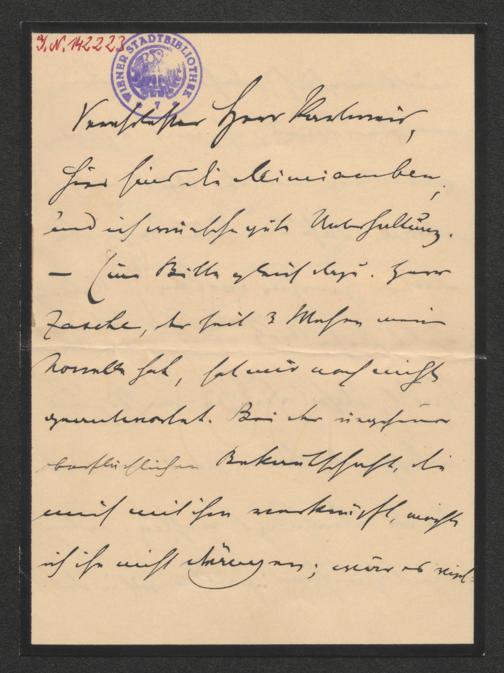 J.N. 142223
WIENER STADTBIBLIOTHEK
Verehrtester Herr
hier sind die Mimiamben,
und ich wünsche gute Unterhaltung.
— Eine Bitte gleich dazu. Herr
Zasche, der seit 3 Wochen meine
Novelle hat, hat mir noch nicht
geantwortet. Bei der ungeheuer
oberflächlichen Bekanntschaft, die
mich mit ihm verknüpft, möchte
ich ihn nicht drängen; wäre es